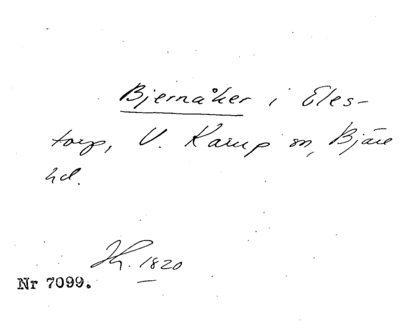 Bjernåker i Eles-
torp, V. Karup sn, Bjäre
hd.
Hk. 1820
Nr 7099.